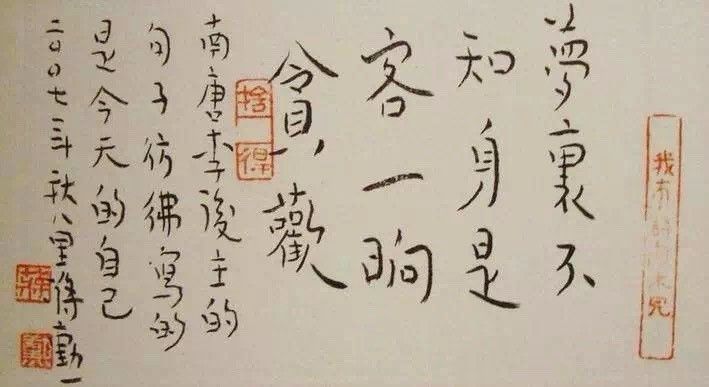 夢裏不
知身是
客一晌
貪歡
捨得
南唐李後主的
句子彷彿寫的
是今天的自己
二〇〇七年秋八里蔣勳
蔣
勳